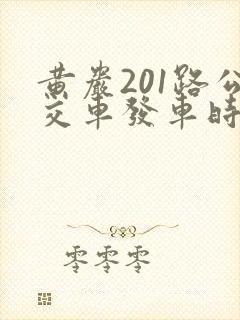 黄巖201路公
交車發車時
零零零